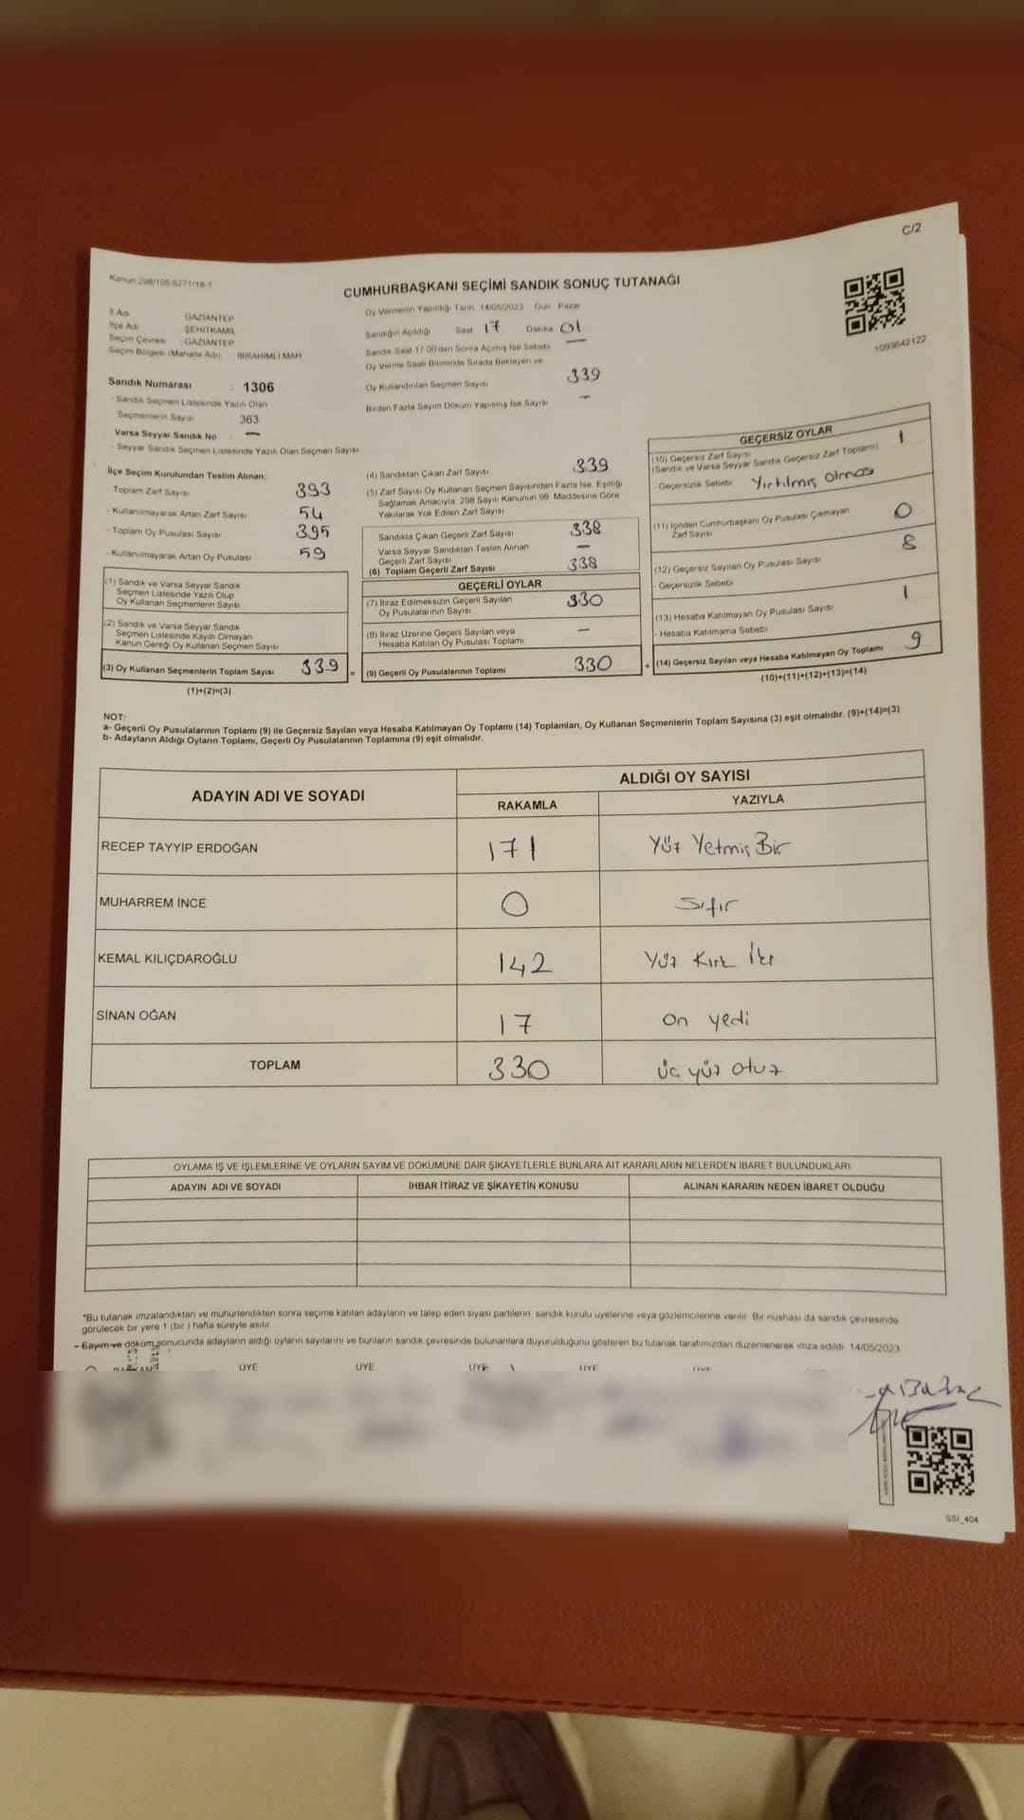 C/2
Kanun:298/105 6271/18-1
CUMHURBAŞKANI SEÇİMİ SANDIK SONUÇ TUTANAĞI
1093642122
İl Adı GAZİANTEP
İlçe Adı ŞEHİTKAMİL
Seçim Çevresi GAZİANTEP
Seçim Bölgesi (Mahalle Adı) İBRAHİMLİ MAH
Sandık Numarası : 1306
- Sandık Seçmen Listesinde Yazılı Olan
Seçmenlerin Sayısı 363
Varsa Seyyar Sandık No —
- Seyyar Sandık Seçmen Listesinde Yazılı Olan Seçmen Sayısı
İlçe Seçim Kurulundan Teslim Alınan:
- Toplam Zarf Sayısı 393
- Kullanılmayarak Artan Zarf Sayısı 54
- Toplam Oy Pusulası Sayısı 395
- Kullanılmayarak Artan Oy Pusulası 59
(1) Sandık ve Varsa Seyyar Sandık
Seçmen Listesinde Yazılı Olup
Oy Kullanan Seçmenlerin Sayısı
(2) Sandık ve Varsa Seyyar Sandık
Seçmen Listesinde Kayıtlı Olmayan
Kanun Gereği Oy Kullanan Seçmen Sayısı
(3) Oy Kullanan Seçmenlerin Toplam Sayısı 339 =
(1)+(2)=(3)
Oy Vermenin Yapıldığı Tarih 14/05/2023 Gün : Pazar
Sandığın Açıldığı Saat 17 Dakika 01
Sandık Saat 17.00'den Sonra Açılmış İse Sebebi —
Oy Verme Saati Bitiminde Sırada Bekleyen ve
Oy Kullandırılan Seçmen Sayısı 339
Birden Fazla Sayım Döküm Yapılmış İse Sayısı —
(4) Sandıktan Çıkan Zarf Sayısı 339
(5) Zarf Sayısı Oy Kullanan Seçmen Sayısından Fazla İse, Eşitliği
Sağlamak Amacıyla, 298 Sayılı Kanunun 98. Maddesine Göre
Yakılarak Yok Edilen Zarf Sayısı
Sandıkta Çıkan Geçerli Zarf Sayısı 338
Varsa Seyyar Sandıktan Teslim Alınan
Geçerli Zarf Sayısı —
(6) Toplam Geçerli Zarf Sayısı 338
GEÇERLİ OYLAR
(7) İtiraz Edilmeksizin Geçerli Sayılan
Oy Pusulalarının Sayısı 330
(8) İtiraz Üzerine Geçerli Sayılan veya
Hesaba Katılan Oy Pusulası Toplamı —
(9) Geçerli Oy Pusulalarının Toplamı 330 +
GEÇERSİZ OYLAR
(10) Geçersiz Zarf Sayısı 1
(Sandık ve Varsa Seyyar Sandık Geçersiz Zarf Toplamı)
- Geçersizlik Sebebi Yırtılmış olması
(11) İçinden Cumhurbaşkanı Oy Pusulası Çıkmayan
Zarf Sayısı 0
(12) Geçersiz Sayılan Oy Pusulası Sayısı 8
- Geçersizlik Sebebi
(13) Hesaba Katılmayan Oy Pusulası Sayısı 1
- Hesaba Katılmama Sebebi
(14) Geçersiz Sayılan veya Hesaba Katılmayan Oy Toplamı 9
(10)+(11)+(12)+(13)=(14)
NOT:
a- Geçerli Oy Pusulalarının Toplamı (9) ile Geçersiz Sayılan veya Hesaba Katılmayan Oy Toplamı (14) Toplamları, Oy Kullanan Seçmenlerin Toplam Sayısına (3) eşit olmalıdır. (9)+(14)=(3)
b- Adayların Aldığı Oyların Toplamı, Geçerli Oy Pusulalarının Toplamına (9) eşit olmalıdır.
ADAYIN ADI VE SOYADI ALDIĞI OY SAYISI
RAKAMLA YAZIYLA
RECEP TAYYİP ERDOĞAN 171 Yüz Yetmiş Bir
MUHARREM İNCE 0 Sıfır
KEMAL KILIÇDAROĞLU 142 Yüz Kırk İki
SİNAN OĞAN 17 on yedi
TOPLAM 330 üç yüz otuz
OYLAMA İŞ VE İŞLEMLERİNE VE OYLARIN SAYIM VE DÖKÜMÜNE DAİR ŞİKAYETLERLE BUNLARA AİT KARARLARIN NELERDEN İBARET BULUNDUKLARI
ADAYIN ADI VE SOYADI İHBAR İTİRAZ VE ŞİKAYETİN KONUSU ALINAN KARARIN NEDEN İBARET OLDUĞU
*Bu tutanak imzalandıktan ve mühürlendikten sonra seçime katılan adayların ve talep eden siyasi partilerin sandık kurulu üyelerine veya gözlemcilerine verilir. Bir nüshası da sandık çevresinde
görülecek bir yere 1 (bir ) hafta süreyle asılır.
- Sayım ve döküm sonucunda adayların aldığı oyların sayılarını ve bunların sandık çevresinde bulunanlara duyurulduğunu gösteren bu tutanak tarafımızdan düzenlenerek imza edildi. 14/05/2023
ÜYE ÜYE ÜYE ÜYE
SSI_404